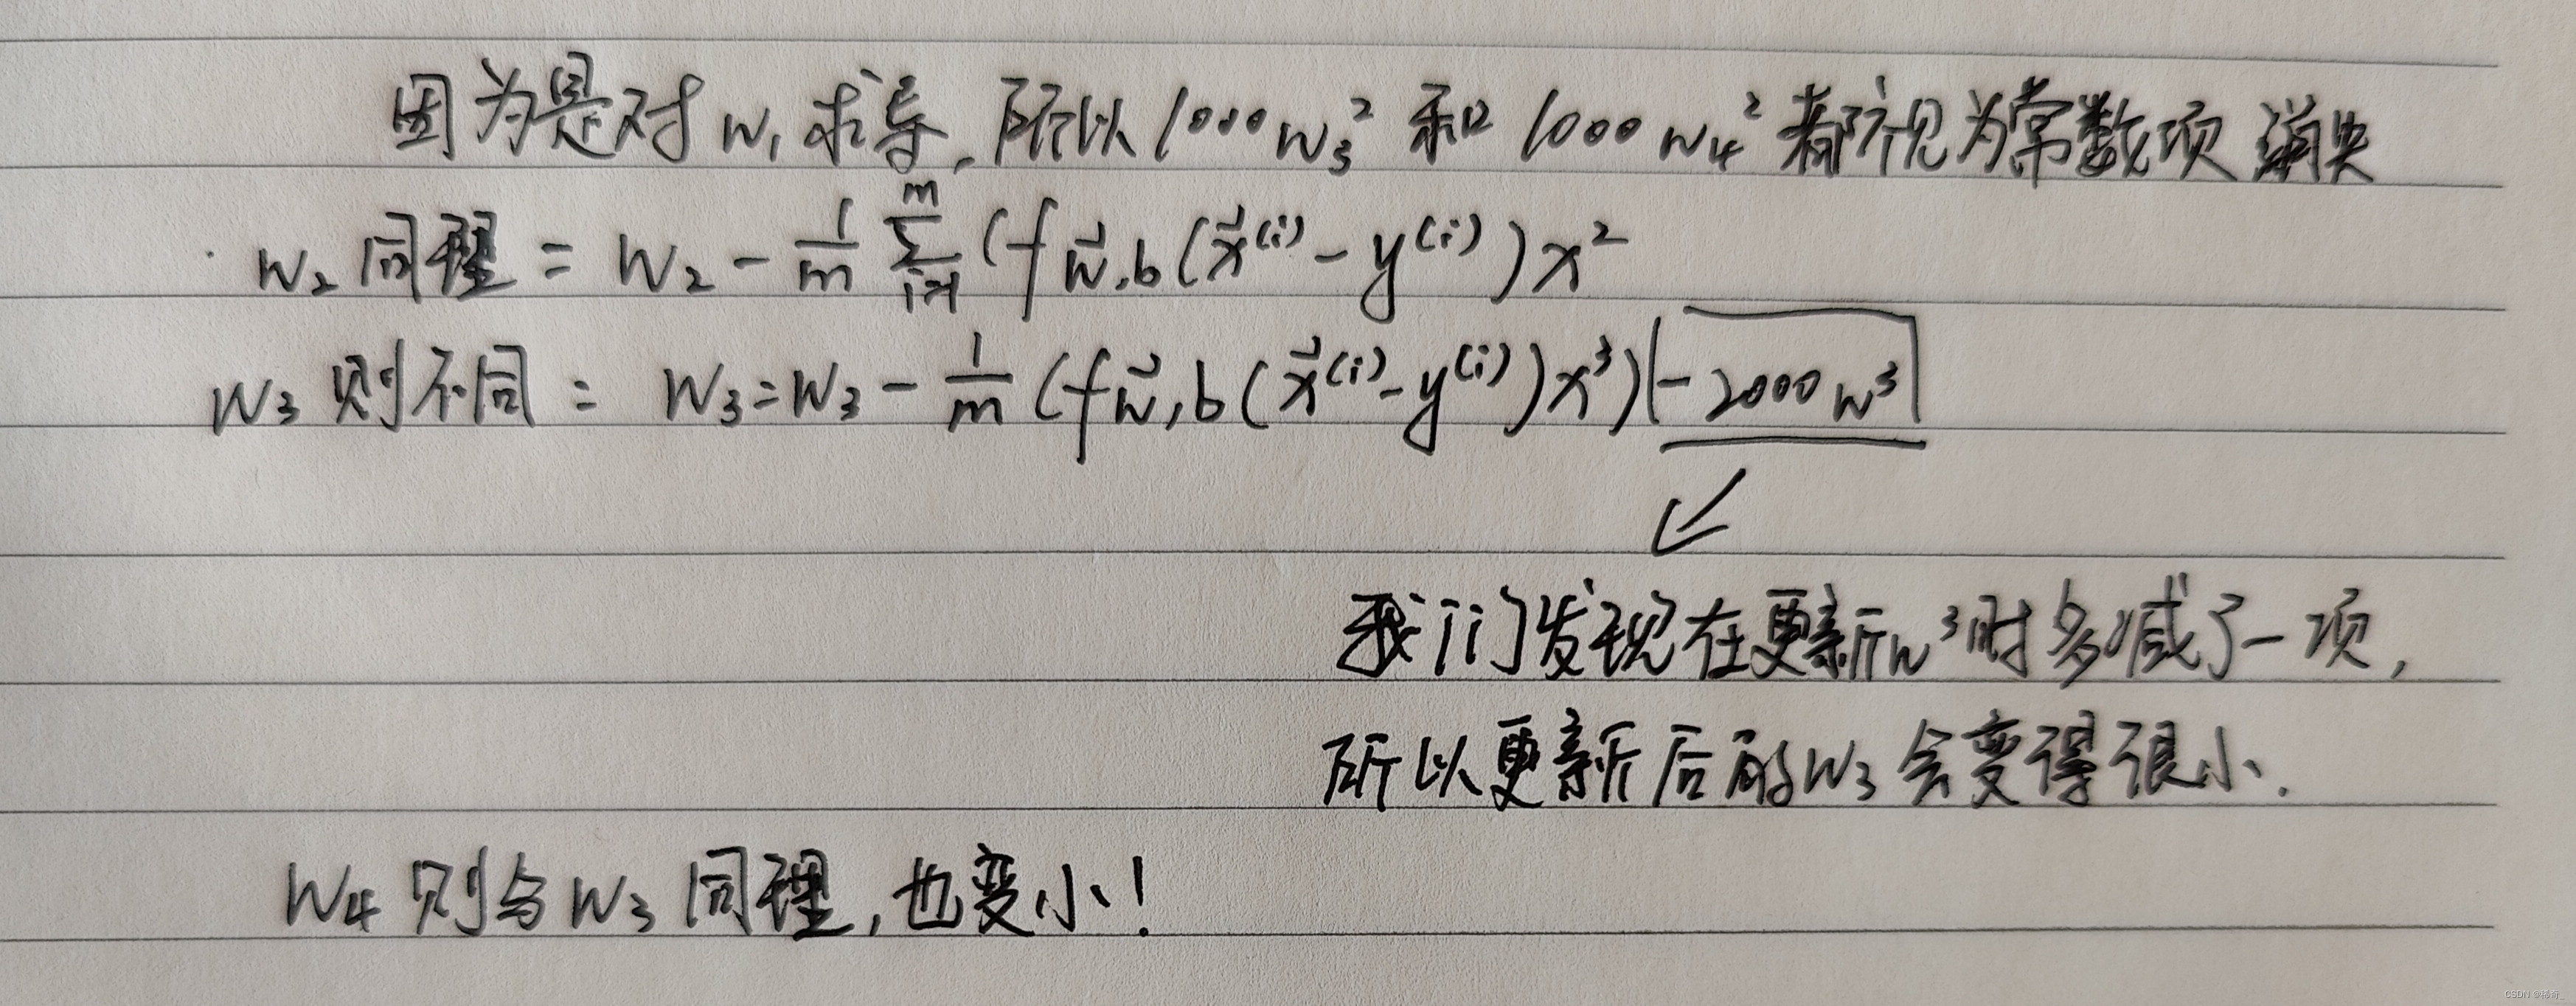 因为是对 w₁ 求导，所以 1000 w₃² 和 1000 w₄² 都视为常数项 消失
w₂ 同理 = w₂ - 1/m ∑_{i=1}^{m} (f w⃗,b (x⃗⁽ⁱ⁾ - y⁽ⁱ⁾) x²
w₃ 则不同 = w₃ = w₃ - 1/m (f w⃗,b (x⃗⁽ⁱ⁾ - y⁽ⁱ⁾) x³) - 2000 w³
我们发现在更新w³时多减了一项，
所以更新后的w₃会变得很小.
w₄ 则与 w₃ 同理，也变小！
CSDN @稀奇